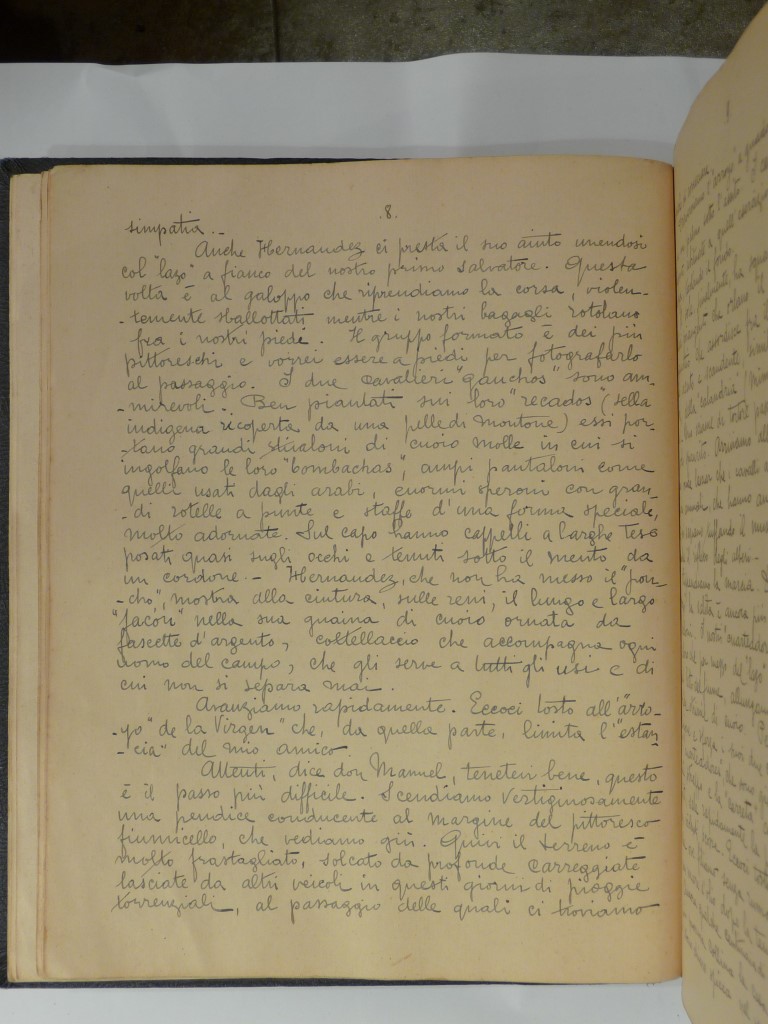 .8.
simpatia.-
Anche Hernandez ci presta il suo aiuto unendosi
col "lazo" a fianco del nostro primo salvatore. Questa
volta è al galoppo che riprendiamo la corsa, violen-
-temente sballottati mentre i nostri bagagli rotolano
fra i nostri piedi. Il gruppo formato è dei più
pittoreschi e vorrei essere a piedi per fotografarlo
al passaggio. I due cavalieri "gauchos" sono am-
-mirevoli. Ben piantati sui loro "recados" (sella
indigena ricoperta da una pelle di montone) essi por-
-tano grandi stivaloni di cuoio molle in cui si
ingolfano le loro "bombachas", ampi pantaloni come
quelli usati dagli arabi, enormi speroni con gran-
-di rotelle a punte e staffe d'una forma speciale,
molto adornate. Sul capo hanno cappelli a larghe tese
posati quasi sugli occhi e tenuti sotto il mento da
un cordone.- Hernandez, che non ha messo il "pon-
-cho", mostra alla cintura, sulle reni, il lungo e largo
"facon" nella sua guaina di cuoio ornata da
fascette d'argento, coltellaccio che accompagna ogni
uomo del campo, che gli serve a tutti gli usi e di
cui non si separa mai.
Avanziamo rapidamente. Eccoci tosto all'"arro-
-yo" de la Virgen" che, da quella parte, limita l'"estan-
-cia" del mio amico.
Attenti, dice don Manuel, tenetevi bene, questo
è il passo più difficile. Scendiamo vertiginosamente
una pendice conducente al margine del pittoresco
fiumicello, che vediamo giù. Quivi il terreno è
molto frastagliato, solcato da profonde carreggiate
lasciate da altri veicoli in questi giorni di pioggie
torrenziali, al passaggio delle quali ci troviamo